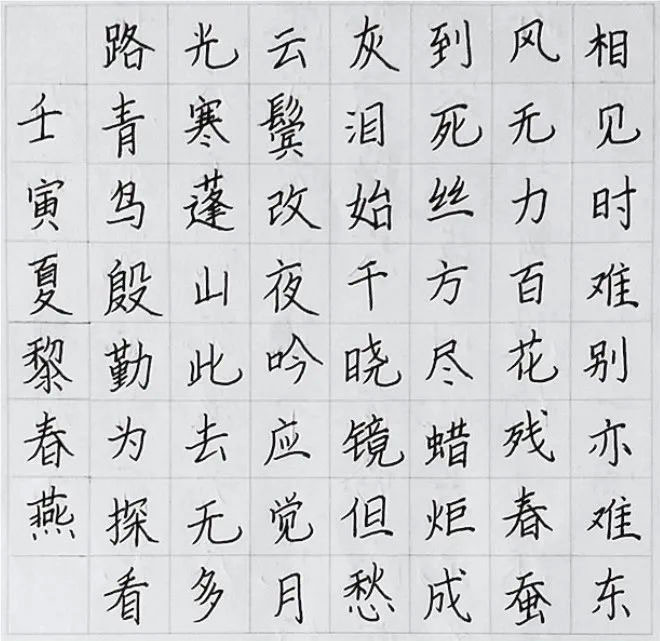 相见时难别亦难东
风无力百花残春蚕
到死丝方尽蜡炬成
灰泪始干晓镜但愁
云鬓改夜吟应觉月
光寒蓬山此去无多
路青鸟殷勤为探看
壬寅夏黎春燕